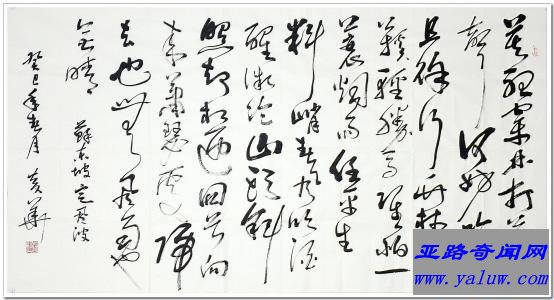 莫聽穿林打葉
聲何妨吟
且徐行竹杖
鞋輕勝馬誰怕一
蓑烟雨任平生
料峭春风吹酒
醒微冷山头斜
照却相迎回首向
来萧瑟處歸
去也无风雨也
无晴
蘇东坡定风波
癸巳年春月
亚路奇闻网
www.yaluw.com